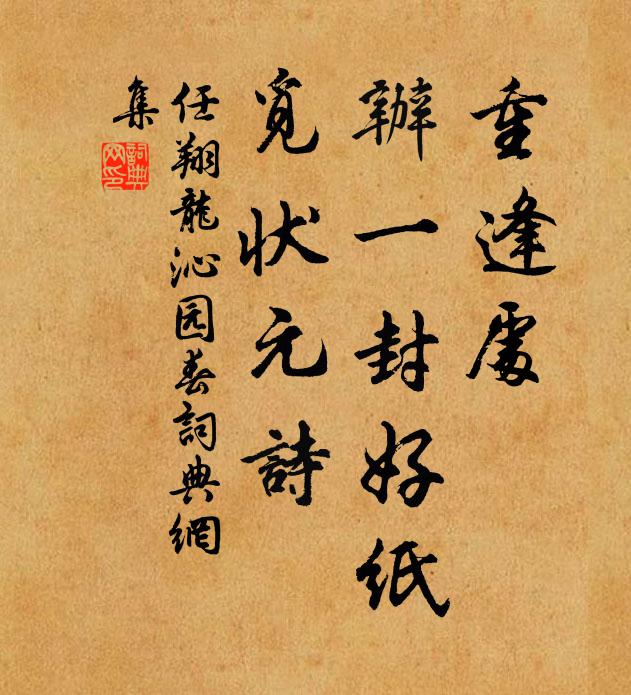 重逢處
辦一封好紙
覓状元詩
任翔龍沁园春詞典網
集
詞典
网印